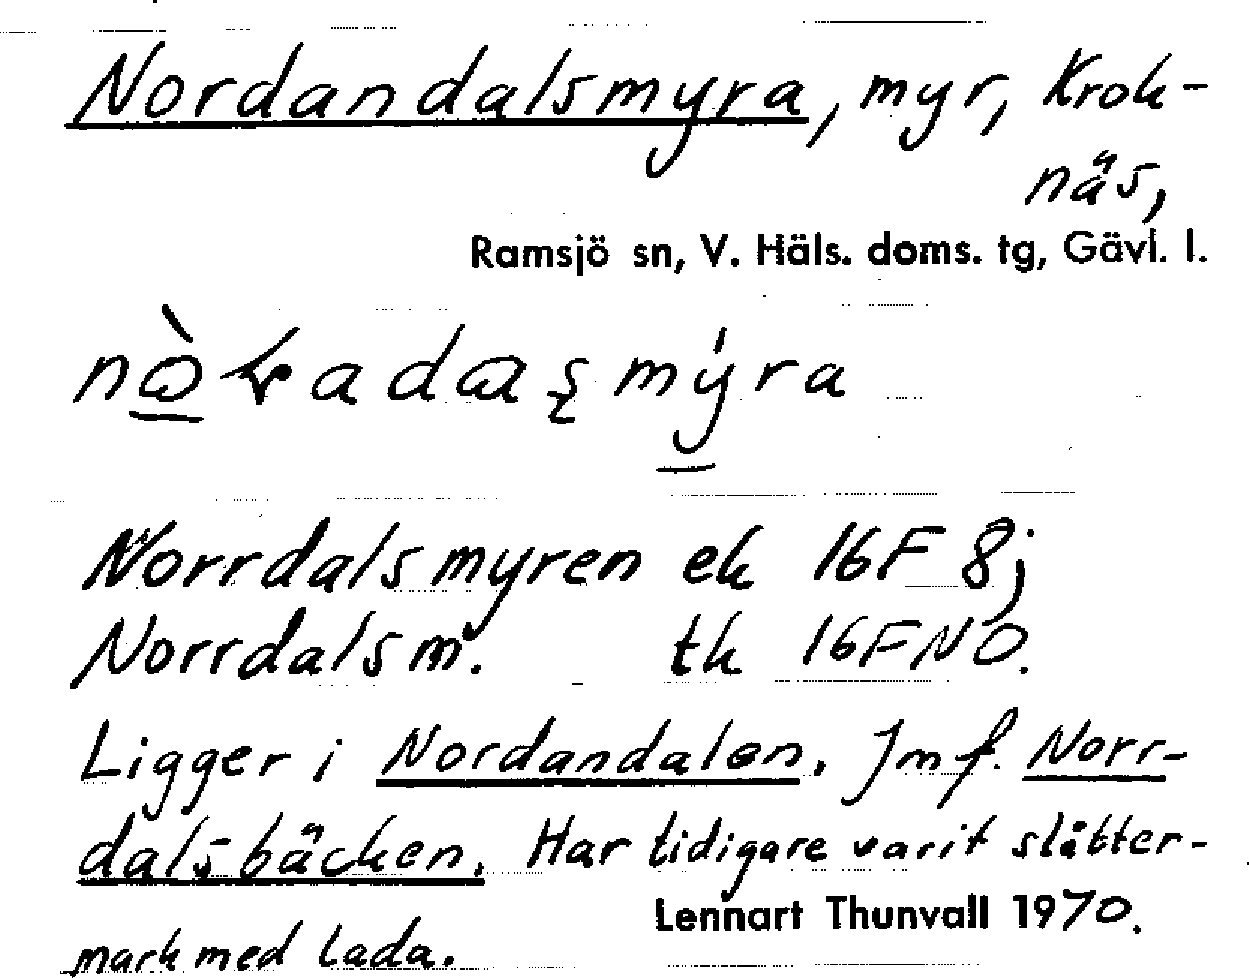 Nordandalsmyra, myr, Krok-
näs,
Ramsjö sn, V. Häls. doms. tg, Gävl. l.
Norrdalsmyren ek 16F 8j
Norrdalsm. tk 16FNO.
Ligger i Nordandalen. Jmf. Norr-
dalsbäcken. Har tidigare varit slåtter-
mark med lada.
Lennart Thunvall 1970.